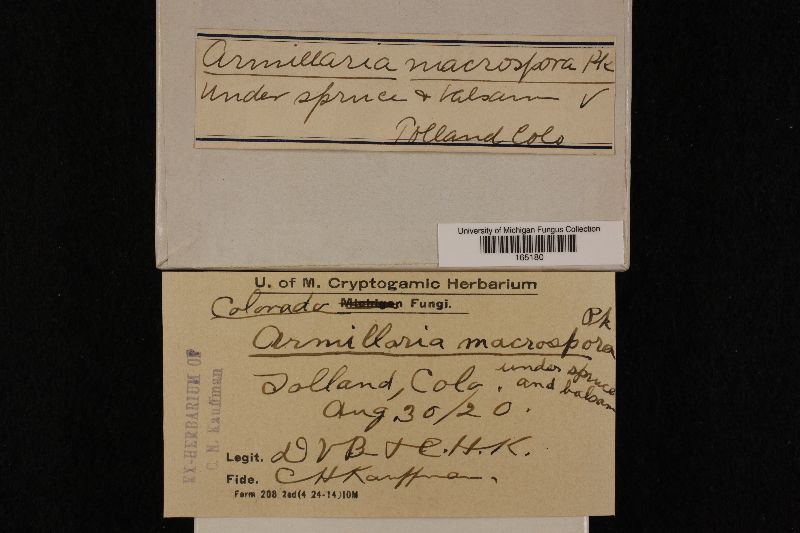 Armillaria macrospora Pk
Under spruce & balsam V
Tolland Colo
University of Michigan Fungus Collection
165180
U. of M. Cryptogamic Herbarium
Colorado Michigan Fungi.
Armillaria macrospora Pk
Tolland, Colo. under spruce
and balsam
Aug. 30/20.
Legit. D V B & C. H. K.
Fide. C H Kauffman.
Form 208 2ed(4 24-14)10M
EX-HERBARIUM OF
C. H. Kauffman